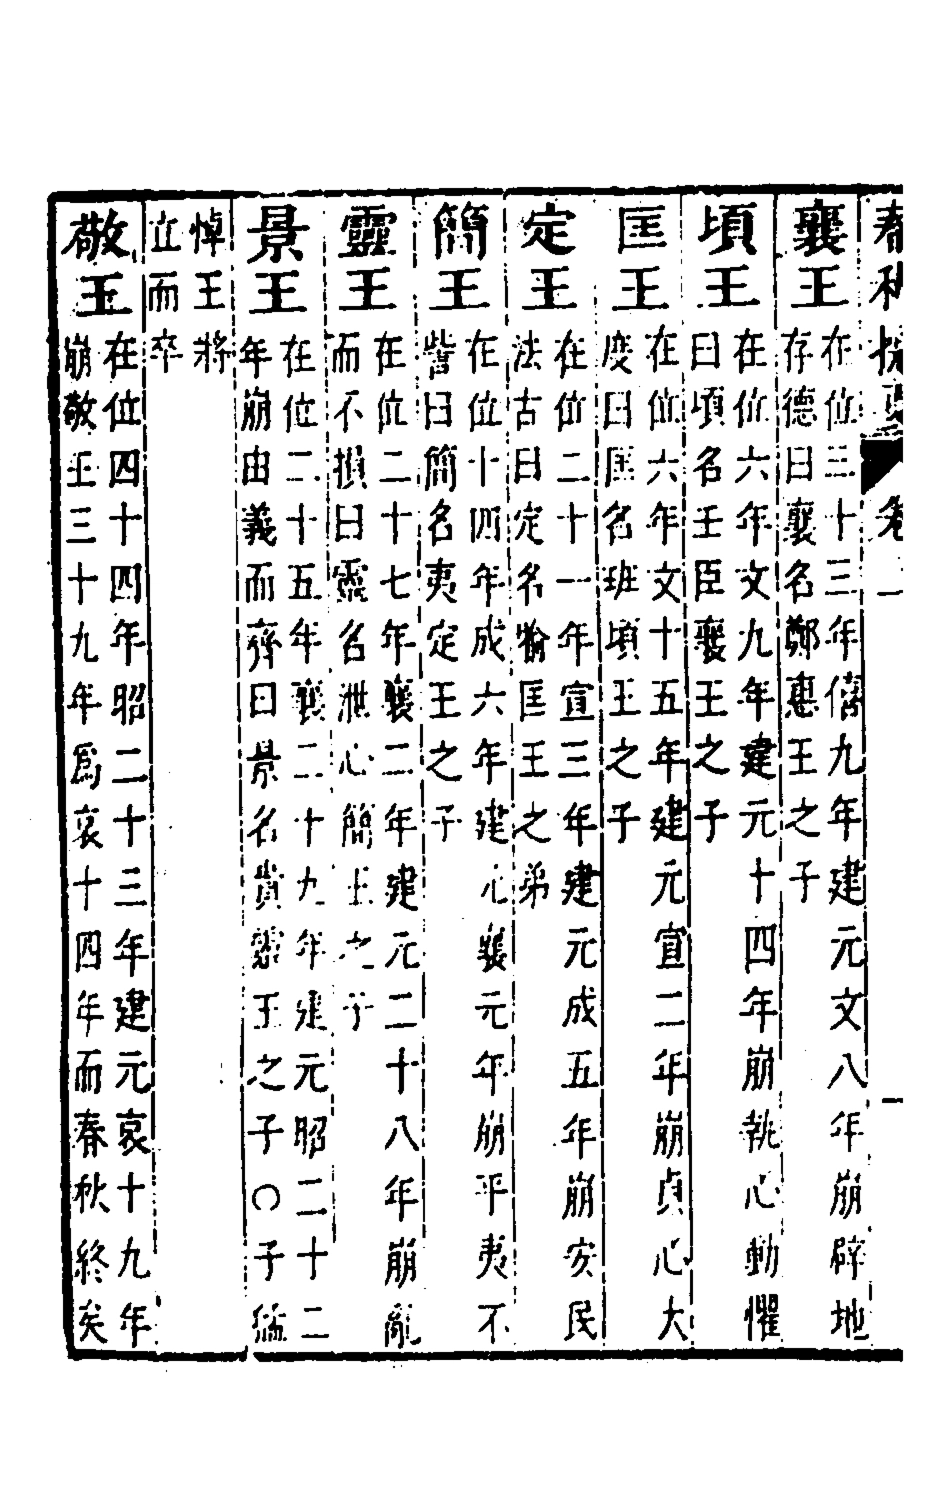 春秋提要 卷一 一
襄王 在位三十三年僖九年建元文八年崩辟地
存德曰襄名鄭惠王之子
頃王 在位六年文九年建元十四年崩執心動懼
曰頃名壬臣襄王之子
匡王 在位六年文十五年建元宣二年崩貞心大
度曰匡名班頃王之子
定王 在位二十一年宣三年建元成五年崩安民
法古曰定名匡王之弟
簡王 在位十四年成六年建元襄元年崩平夷不
訾曰簡名夷定王之子
靈王 在位二十七年襄二年建元二十八年崩亂
而不損曰靈名泄心簡王之子
景王 在位二十五年襄二十九年建元昭二十二
年崩由義而齊曰景名貴靈王之子○子猛
悼王將
立而卒
敬王 在位四十四年昭二十三年建元哀十九年
崩敬王三十九年爲哀十四年而春秋終矣